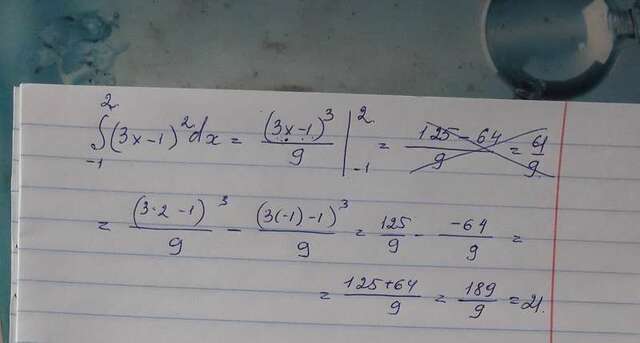 ∫₋₁² (3x-1)² dx = (3x-1)³/9 |₋₁² = 125-64/9 = 61/9
= (3·2-1)³/9 - (3(-1)-1)³/9 = 125/9 - -64/9 =
= 125+64/9 = 189/9 = 21.